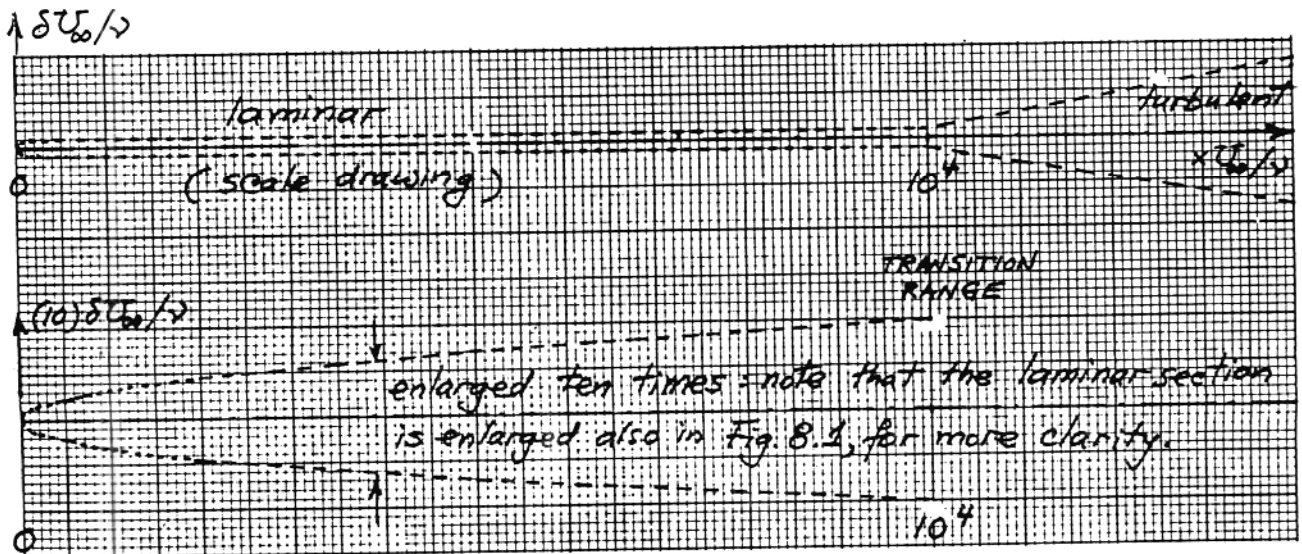 δU∞/ν
laminar
turbulent
0
(scale drawing)
10⁴
xU∞/ν
TRANSITION
RANGE
(10)δU∞/ν
enlarged ten times: note that the laminar section
is enlarged also in Fig 8.1, for more clarity.
0
10⁴